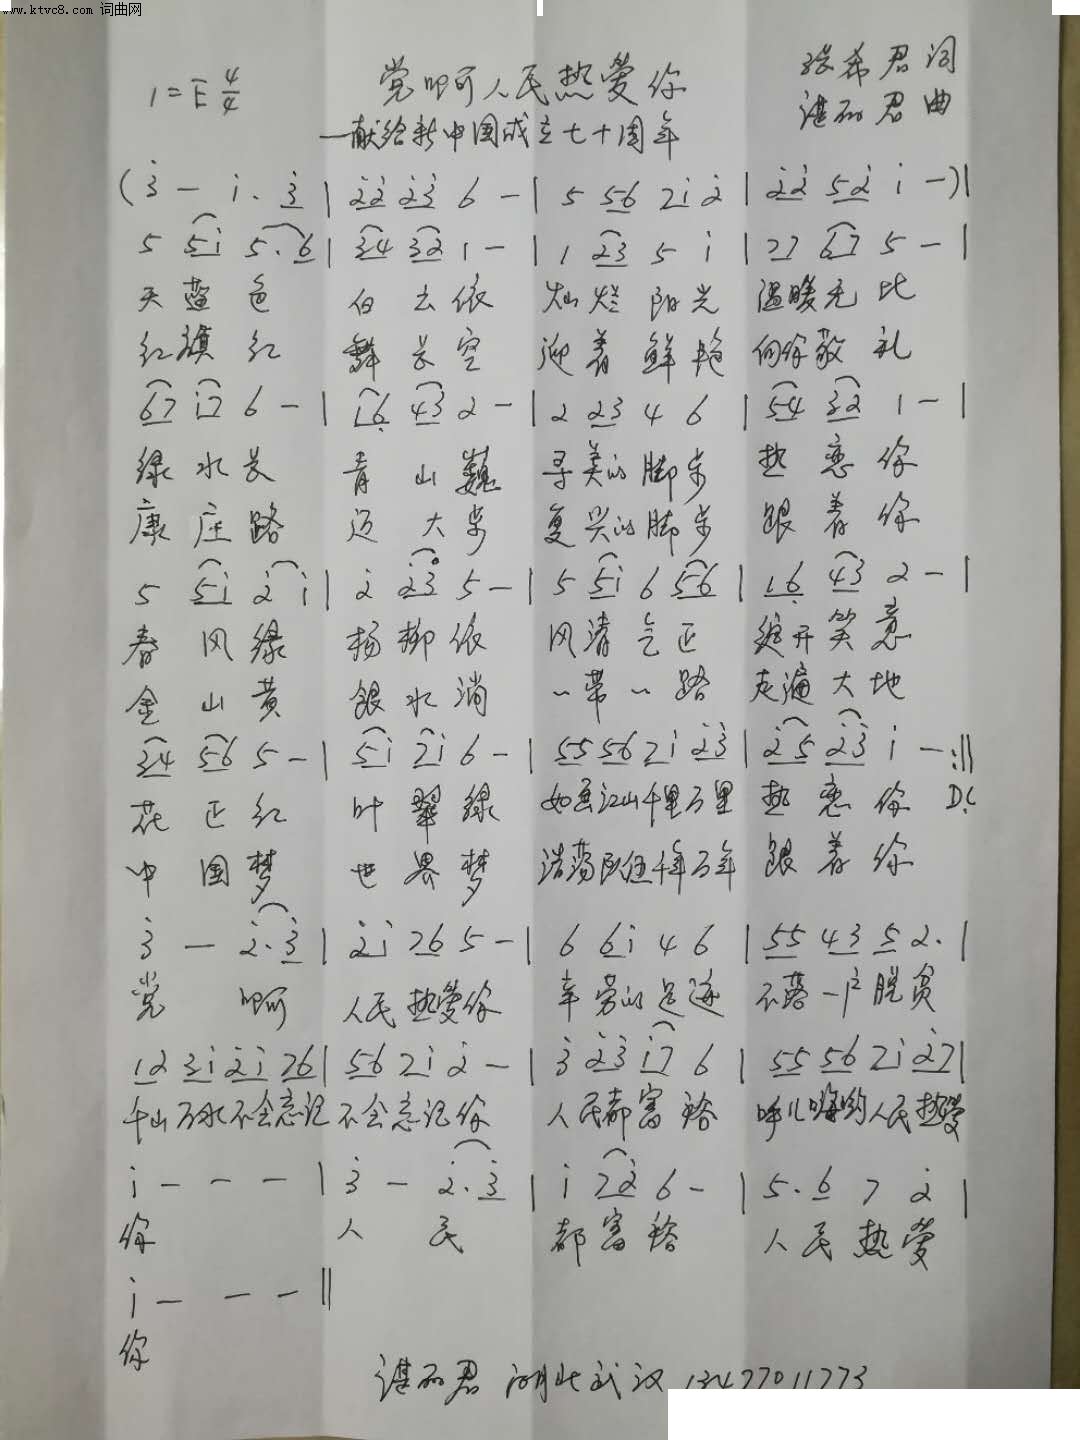 www.ktvc8.com 词曲网
1=E 4/4 党啊人民热爱你 张希君词
—献给新中国成立七十周年 谌丽君曲
(3̇ — i. 3̇ | 2̇2̇ 2̇3̇ 6 — | 5 56 7i 2̇ | 2̇2̇ 52̇ i —)|
5 5i 5.6 | 34 32 1 — | 1 23 5 i | 77 67 5 — |
天蓝色 白云依 灿烂阳光 温暖无比
红旗红 舞长空 迎着鲜艳 向你敬礼
67 i7 6 — | 16 43 2 — | 2 23 4 6 | 54 32 1 — |
绿水长 青山巍 寻美的脚步 热恋你
康庄路 迈大步 复兴的脚步 跟着你
5 5i 2̇ i | 2̇ 2̇3̇ 5 — | 5 5i 6 56 | 16 43 2 — |
春风绿 杨柳依 风清气正 绽开笑意
金山黄 银水淌 一带一路 走遍大地
34 56 5 — | 5i 7i 6 — | 55 56 7i 2̇3̇ | 2̇5 2̇3̇ i — :||
花正红 叶翠绿 如画江山千里万里 热恋你 D.C
中国梦 世界梦 浩荡队伍千年万年 跟着你
3̇ — 2̇.3̇ | 2̇i 76 5 — | 6 6i 4 6 | 55 43 5 2. |
党啊 人民热爱你 辛劳的足迹 不落一户脱贫
12 3i 2̇i 76 | 56 7i 2̇ — | 3̇ 2̇3̇ i7 6 | 55 56 7i 2̇7 |
千山万水不会忘记 不会忘记你 人民都富裕 呼儿嗨哟人民热爱
i — — — | 3̇ — 2̇.3̇ | i 72̇ 6 — | 5.6 7 2̇ |
你 人民 都富裕 人民热爱
i — — — ||
你
谌丽君 湖北武汉 13477011773